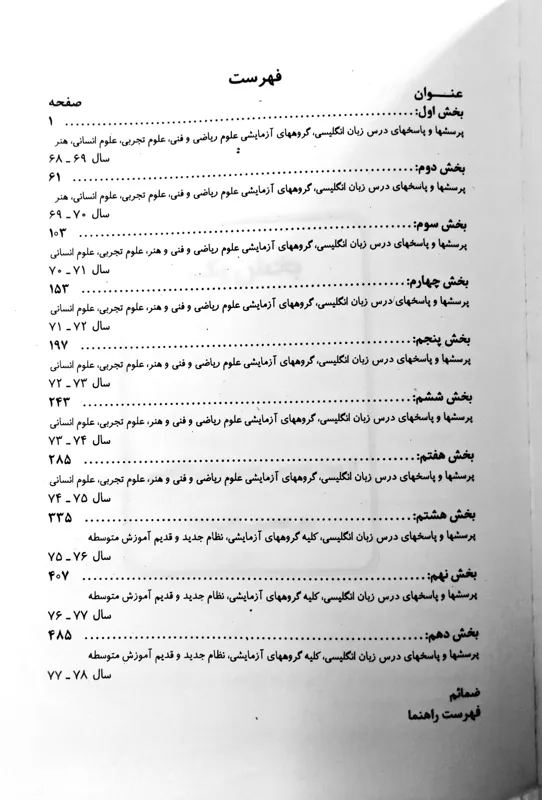 فهرست
عنـــوان
صفحه
بخش اول: ........................................................ ۱
پرسشها و پاسخهای درس زبان انگلیسی، گروههای آزمایشی علوم ریاضی و فنی، علوم تجربی، علوم انسانی، هنر
سال ۶۹ ـ ۶۸
بخش دوم: ........................................................ ۶۱
پرسشها و پاسخهای درس زبان انگلیسی، گروههای آزمایشی علوم ریاضی و فنی، علوم تجربی، علوم انسانی، هنر
سال ۷۰ ـ ۶۹
بخش سوم: ........................................................ ۱۰۳
پرسشها و پاسخهای درس زبان انگلیسی، گروههای آزمایشی علوم ریاضی و فنی و هنر، علوم تجربی، علوم انسانی
سال ۷۱ ـ ۷۰
بخش چهارم: ........................................................ ۱۵۳
پرسشها و پاسخهای درس زبان انگلیسی، گروههای آزمایشی علوم ریاضی و فنی و هنر، علوم تجربی، علوم انسانی
سال ۷۲ ـ ۷۱
بخش پنجم: ........................................................ ۱۹۷
پرسشها و پاسخهای درس زبان انگلیسی، گروههای آزمایشی علوم ریاضی و فنی و هنر، علوم تجربی، علوم انسانی
سال ۷۳ ـ ۷۲
بخش ششم: ........................................................ ۲۴۳
پرسشها و پاسخهای درس زبان انگلیسی، گروههای آزمایشی علوم ریاضی و فنی و هنر، علوم تجربی، علوم انسانی
سال ۷۴ ـ ۷۳
بخش هفتم: ........................................................ ۲۸۵
پرسشها و پاسخهای درس زبان انگلیسی، گروههای آزمایشی علوم ریاضی و فنی و هنر، علوم تجربی، علوم انسانی
سال ۷۵ ـ ۷۴
بخش هشتم: ........................................................ ۳۳۵
پرسشها و پاسخهای درس زبان انگلیسی، کلیه گروههای آزمایشی، نظام جدید و قدیم آموزش متوسطه
سال ۷۶ ـ ۷۵
بخش نهم: ........................................................ ۴۰۷
پرسشها و پاسخهای درس زبان انگلیسی، کلیه گروههای آزمایشی، نظام جدید و قدیم آموزش متوسطه
سال ۷۷ ـ ۷۶
بخش دهم: ........................................................ ۴۸۵
پرسشها و پاسخهای درس زبان انگلیسی، کلیه گروههای آزمایشی، نظام جدید و قدیم آموزش متوسطه
سال ۷۸ ـ ۷۷
ضمائم
فهرست راهنما